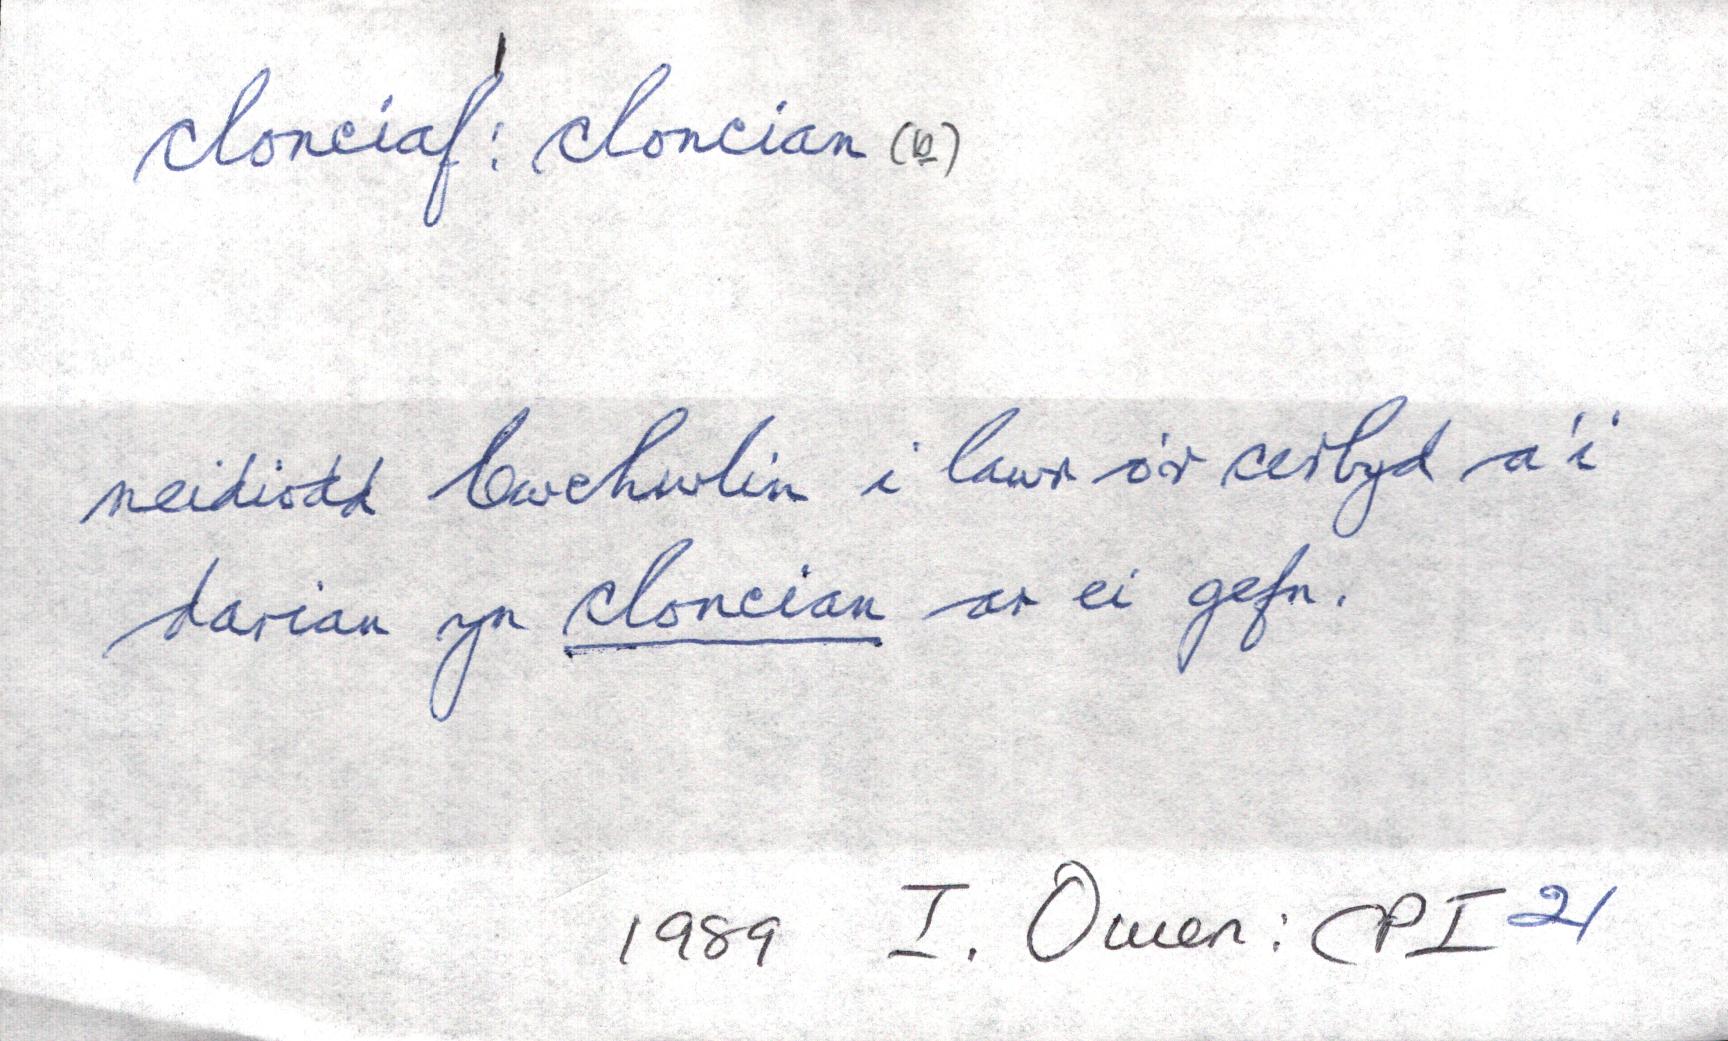 clonciaf: cloncian (b)
neidiodd Cwchwlin i lawr o'r cerbyd a'i
darian yn cloncian ar ei gefn.
1989 I. Owen: CPI 21